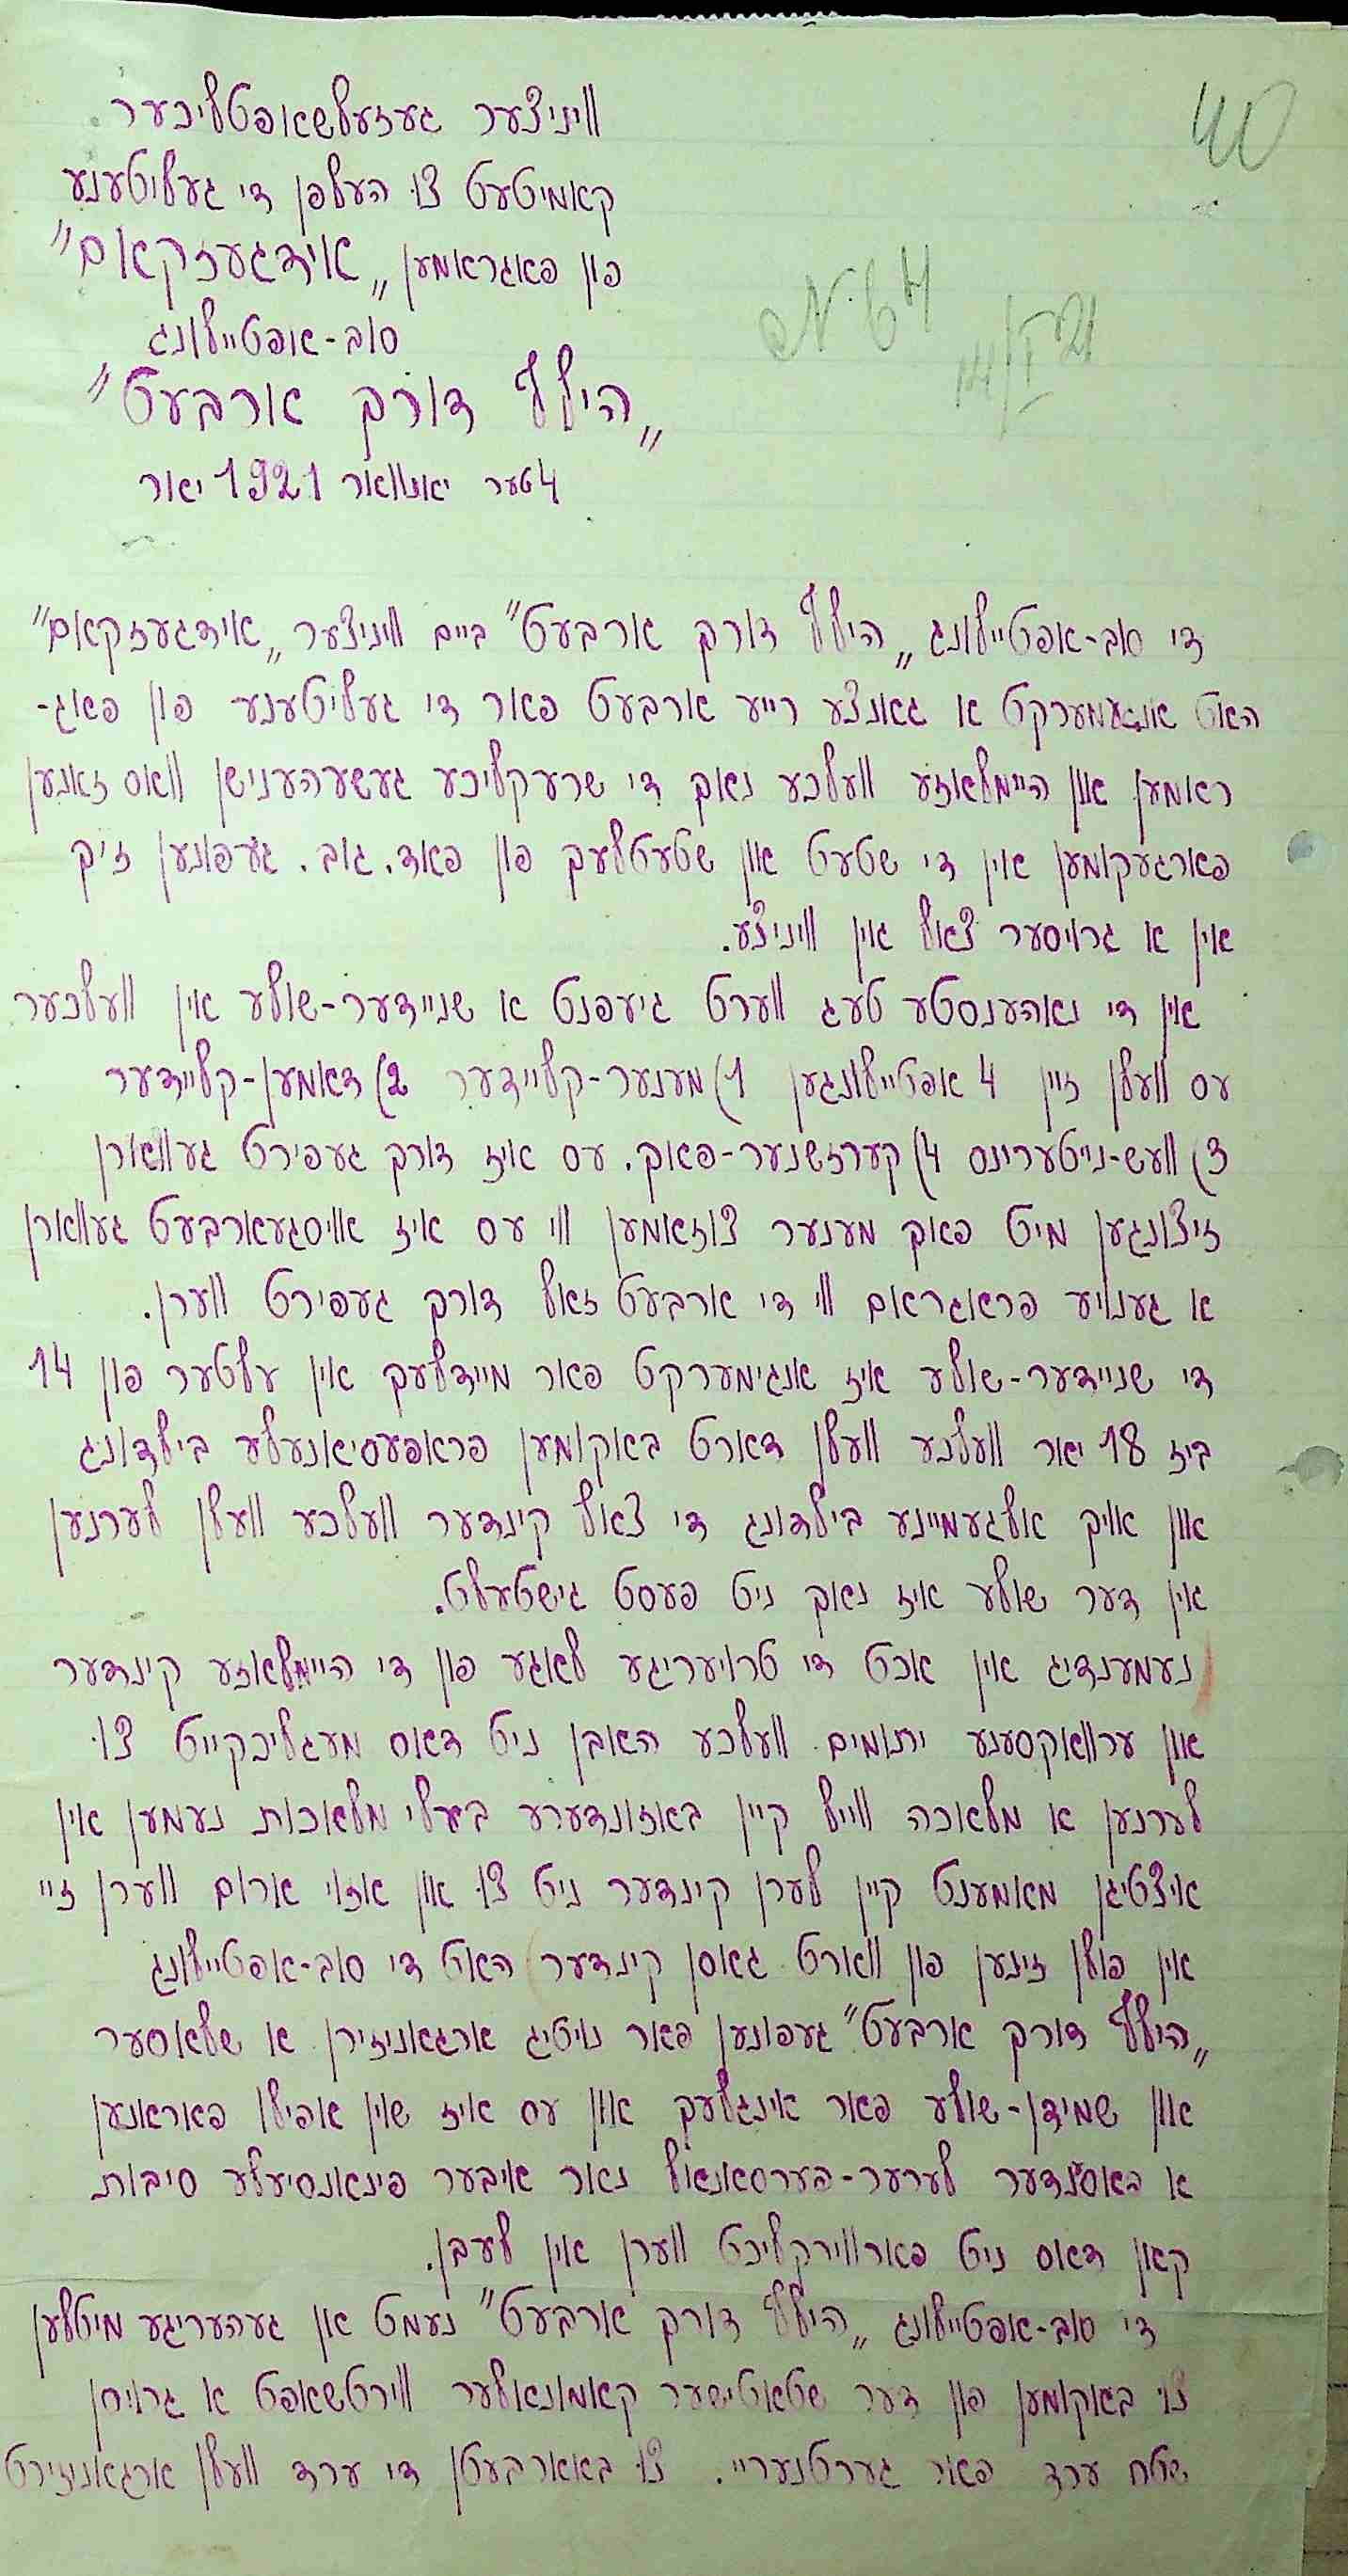 40
וויניצער געזעלשאפטליכער
קאמיטעט צו העלפן די געליטענע
פון פאגראמען „אידגעזקאם"
סוב-אפטיילונג
„הילף דורך ארבעט"
4טער יאנוואר 1921 יאר
N. 64
14/I 21
די סוב-אפטיילונג „הילף דורך ארבעט" ביים וויניצער „אידגעזקאם"
האט אנגעמערקט א גאנצע רייע ארבעט פאר די געליטענע פון פאג-
ראמען און היימלאזע וועלכע נאך די שרעקליכע געשעהענישן וואס זאנען
פארגעקומען אין די שטעט און שטעטלעך פון פאד. גוב. געפונען זיך
אין א גרויסער צאל אין וויניצע.
אין די נאהענסטע טעג ווערט גיעפנט א שניידער-שולע אין וועלכער
עס וועלן זיין 4 אפטיילונגען 1) מענער-קליידער 2) דאמען-קליידער
3) וועש-נייטערינס 4) קערזשנער-פאך. עס איז דורך געפירט געווארן
זיצונגען מיט פאך מענער צוזאמען ווי עס איז אויסגעארבעט געווארן
א גענויע פראגראם ווי די ארבעט זאל דורך געפירט ווערן.
די שניידער-שולע איז אנגימערקט פאר מיידלעך אין עלטער פון 14
ביז 18 יאר וועלכע וועלן דארט באקומען פראפעסיאנעלע בילדונג
און אויך אלגעמיינע בילדונג די צאל קינדער וועלכע וועלן לערנען
אין דער שולע איז נאך ניט פעסט גישטעלט.
נעמענדיג אין אכט די טרויעריגע לאגע פון די היימלאזע קינדער
און ערוואקסענע יתומים וועלכע האבן ניט דאס מעגליכקייט צו
לערנען א מלאכה ווייל קיין באזונדערע בעלי מלאכות נעמען אין
איצטיגן מאמענט קיין לערן קינדער ניט צו און אזוי ארום ווערן זיי
אין פולן זינען פון ווארט גאסן קינדער האט די סוב-אפטיילונג
„הילף דורך ארבעט" געפונען פאר נויטיג ארגאניזירן א שלאסער
און שמידן-שולע פאר אינגלעך און עס איז שוין אפילו פאראנען
א באסנדער לערער-פערסאנאל נאר איבער פינאנסיעלע סיבות
קאן דאס ניט פארווירקליכט ווערן אין לעבן.
די סוב-אפטיילונג „הילף דורך ארבעט" נעמט אן געהעריגע מיטלען
צו באקומען פון דער שטאטישער קאמונאלער ווירטשאפט א גרויסן
שטח ערד פאר גערטנעריי. צו באארבעטן די ערד וועלן ארגאניזירט